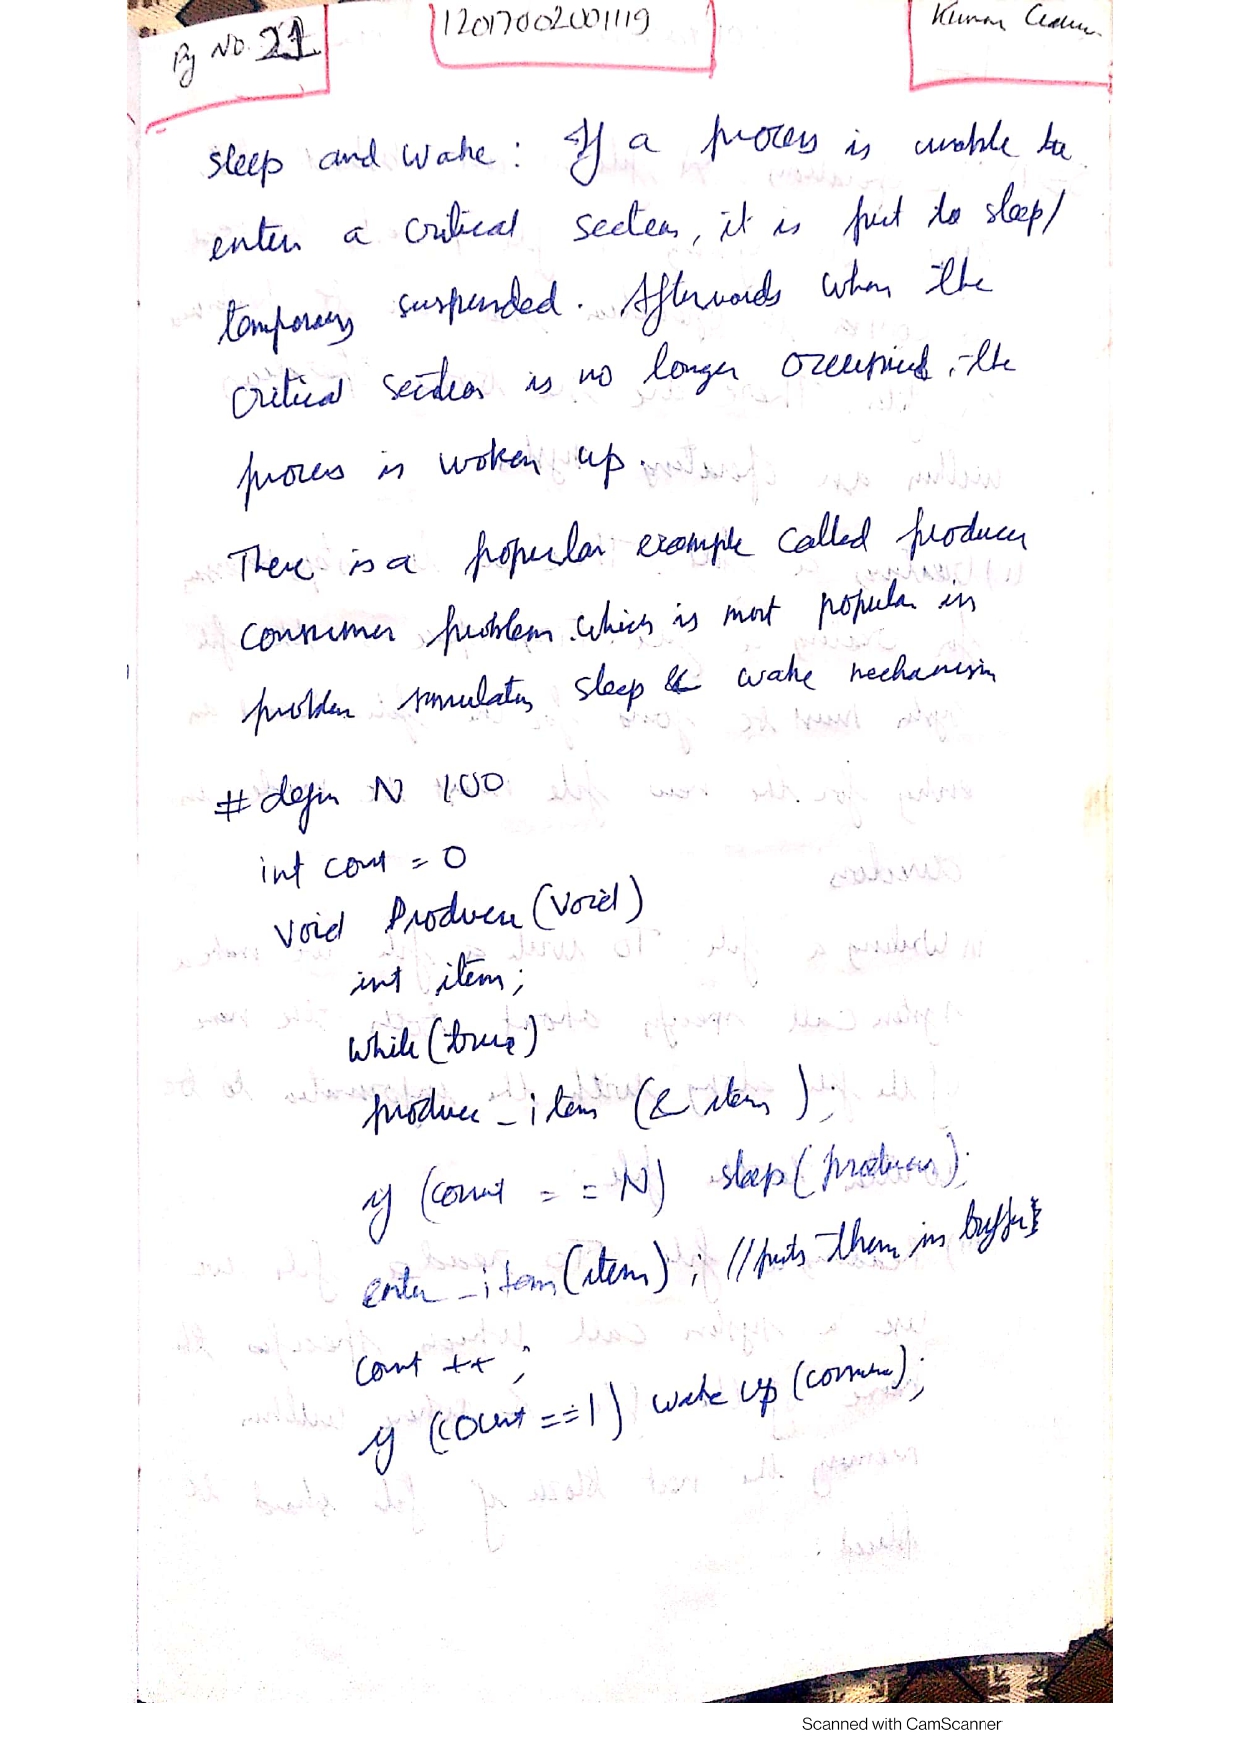 Pg No. 21
12017002001119
Kumar
sleep and wake : If a process is unable to
enter a critical section, it is put to sleep/
temporary suspended. Afterwards when the
critical section is no longer occupied, the
process is woken up.
There is a popular example called producer
consumer problem which is most popular in
problem simulates sleep & wake mechanism
# defin N 100
int cout = 0
void Producer (void)
int item;
while (true)
produce_item (& item);
if (count = = N) sleep (producer);
enter_item (item); // puts them in buffer
count ++ ;
if (count == 1) wake up (consumer);
Scanned with CamScanner